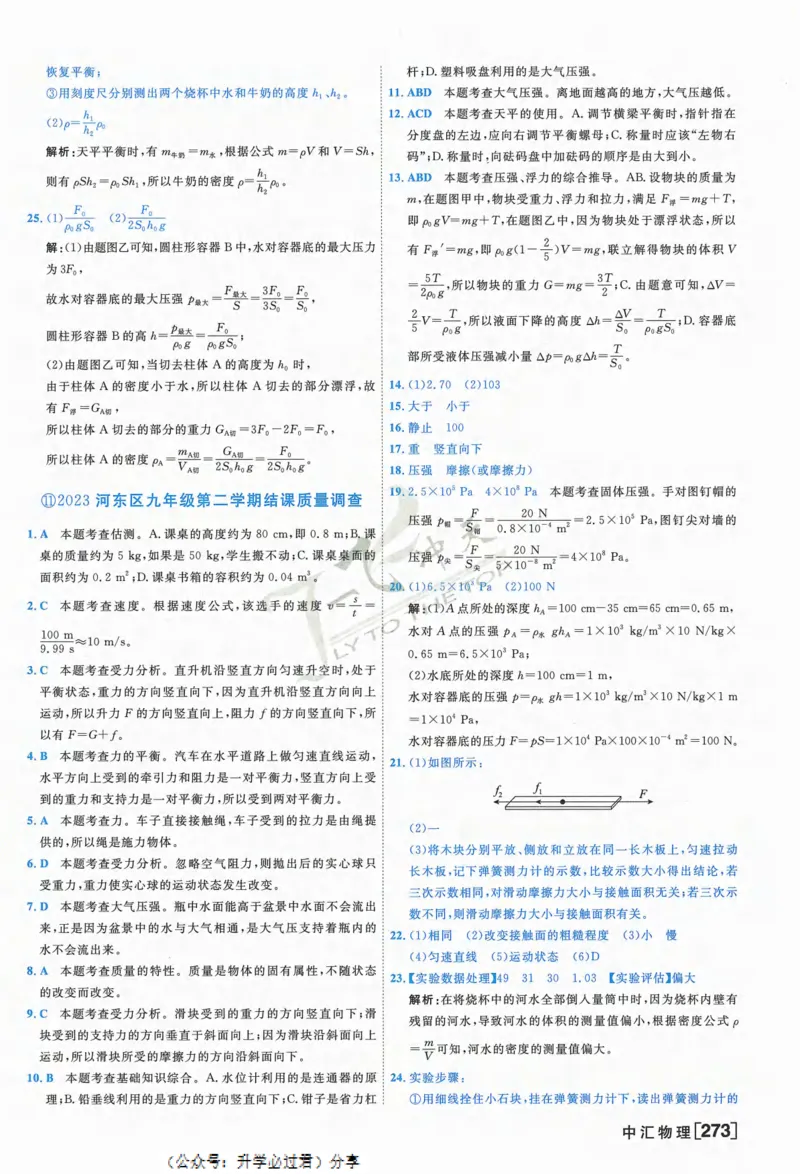 恢复平衡;
③用刻度尺分别测出两个烧杯中水和牛奶的高度 h₁、h₂。
(2)ρ=h₁/h₂ρ₀
解析:天平平衡时,有 m牛奶=m水,根据公式 m=ρV 和 V=Sh,
则有 ρSh₂=ρ₀Sh₁,所以牛奶的密度 ρ=h₁/h₂ρ₀。
25. (1)F₀/ρ₀gS₀ (2)F₀/2S₀h₀g
解:(1)由题图乙可知,圆柱形容器 B 中,水对容器底的最大压力
为 3F₀,
故水对容器底的最大压强 p最大=F最大/S=3F₀/3S₀=F₀/S₀,
圆柱形容器 B 的高 h=p最大/ρ₀g=F₀/ρ₀gS₀;
(2)由题图乙可知,当切去柱体 A 的高度为 h₀ 时,
由于柱体 A 的密度小于水,所以柱体 A 切去的部分漂浮,故
有 F浮=GA切,
所以柱体 A 切去的部分的重力 GA切=3F₀-2F₀=F₀,
所以柱体 A 的密度 ρA=mA切/VA切=GA切/2S₀h₀g=F₀/2S₀h₀g。
⑪2023 河东区九年级第二学期结课质量调查
1. A 本题考查估测。A.课桌的高度约为 80 cm,即 0.8 m;B.课
桌的质量约为 5 kg,如果是 50 kg,学生搬不动;C.课桌桌面的
面积约为 0.2 m²;D.课桌书箱的容积约为 0.04 m³。
2. C 本题考查速度。根据速度公式,该选手的速度 v=s/t=
100 m/9.99 s≈10 m/s。
3. C 本题考查受力分析。直升机沿竖直方向匀速升空时,处于
平衡状态,重力的方向竖直向下,因为直升机沿竖直方向向上
运动,所以升力 F 的方向竖直向上,阻力 f 的方向竖直向下,所
以有 F=G+f。
4. B 本题考查力的平衡。汽车在水平道路上做匀速直线运动,
水平方向上受到的牵引力和阻力是一对平衡力,竖直方向上受
到的重力和支持力是一对平衡力,所以受到两对平衡力。
5. A 本题考查力。车子直接接触绳,车子受到的拉力是由绳提
供的,所以绳是施力物体。
6. D 本题考查受力分析。忽略空气阻力,则抛出后的实心球只
受重力,重力使实心球的运动状态发生改变。
7. D 本题考查大气压强。瓶中水面能高于盆景中水面不会流出
来,正是因为盆景中的水与大气相通,是大气压支持着瓶内的
水不会流出来。
8. A 本题考查质量的特性。质量是物体的固有属性,不随状态
的改变而改变。
9. C 本题考查受力分析。滑块受到的重力的方向竖直向下;滑
块受到的支持力的方向垂直于斜面向上;因为滑块沿斜面向上
运动,所以滑块所受的摩擦力的方向沿斜面向下。
10. B 本题考查基础知识综合。A.水位计利用的是连通器的原
理;B.铅垂线利用的是重力的方向竖直向下;C.钳子是省力杠
杆;D.塑料吸盘利用的是大气压强。
11. ABD 本题考查大气压强。离地面越高的地方,大气压越低。
12. ACD 本题考查天平的使用。A.调节横梁平衡时,指针指在
分度盘的左边,应向右调节平衡螺母;C.称量时应该“左物右
码”;D.称量时,向砝码盘中加砝码的顺序是由大到小。
13. ABD 本题考查压强、浮力的综合推导。AB.设物块的质量为
m,在题图甲中,物块受重力、浮力和拉力,满足 F浮=mg+T,
即 ρ₀gV=mg+T,在题图乙中,因为物块处于漂浮状态,所以
有 F浮′=mg,即 ρ₀g(1-2/5)V=mg,联立解得物块的体积 V
=5T/2ρ₀g,所以物块的重力 G=mg=3T/2;C.由题意可知,ΔV=
2/5V=T/ρ₀g,所以液面下降的高度 Δh=ΔV/S₀=T/ρ₀gS₀;D.容器底
部所受液体压强减小量 Δp=ρ₀gΔh=T/S₀。
14. (1)2.70 (2)103
15. 大于 小于
16. 静止 100
17. 重 竖直向下
18. 压强 摩擦(或摩擦力)
19. 2.5×10⁵ Pa 4×10⁸ Pa 本题考查固体压强。手对图钉帽的
压强 p帽=F/S帽=20 N/0.8×10⁻⁴ m²=2.5×10⁵ Pa,图钉尖对墙的
压强 p尖=F/S尖=20 N/5×10⁻⁸ m²=4×10⁸ Pa。
20. (1)6.5×10³ Pa (2)100 N
解:(1)A 点所处的深度 hA=100 cm-35 cm=65 cm=0.65 m,
水对 A 点的压强 pA=ρ水ghA=1×10³ kg/m³×10 N/kg×
0.65 m=6.5×10³ Pa;
(2)水底所处的深度 h=100 cm=1 m,
水对容器底的压强 p=ρ水gh=1×10³ kg/m³×10 N/kg×1 m
=1×10⁴ Pa,
水对容器底的压力 F=pS=1×10⁴ Pa×100×10⁻⁴ m²=100 N。
21. (1)如图所示:
f₂ f₁ F
(2)一
(3)将木块分别平放、侧放和立放在同一长木板上,匀速拉动
长木板,记下弹簧测力计的示数,比较示数大小得出结论,若
三次示数相同,对滑动摩擦力大小与接触面积无关;若三次示
数不同,则滑动摩擦力大小与接触面积有关。
22. (1)相同 (2)改变接触面的粗糙程度 (3)小 慢
(4)匀速直线 (5)运动状态 (6)D
23. 【实验数据处理】49 31 30 1.03 【实验评估】偏大
解析:在将烧杯中的河水全部倒入量筒中时,因为烧杯内壁有
残留的河水,导致河水的体积的测量值偏小,根据密度公式 ρ
=m/V可知,河水的密度的测量值偏大。
24. 实验步骤:
①用细线拴住小石块,挂在弹簧测力计下,读出弹簧测力计的
中汇物理[273]
(公众号:升学必过君)分享